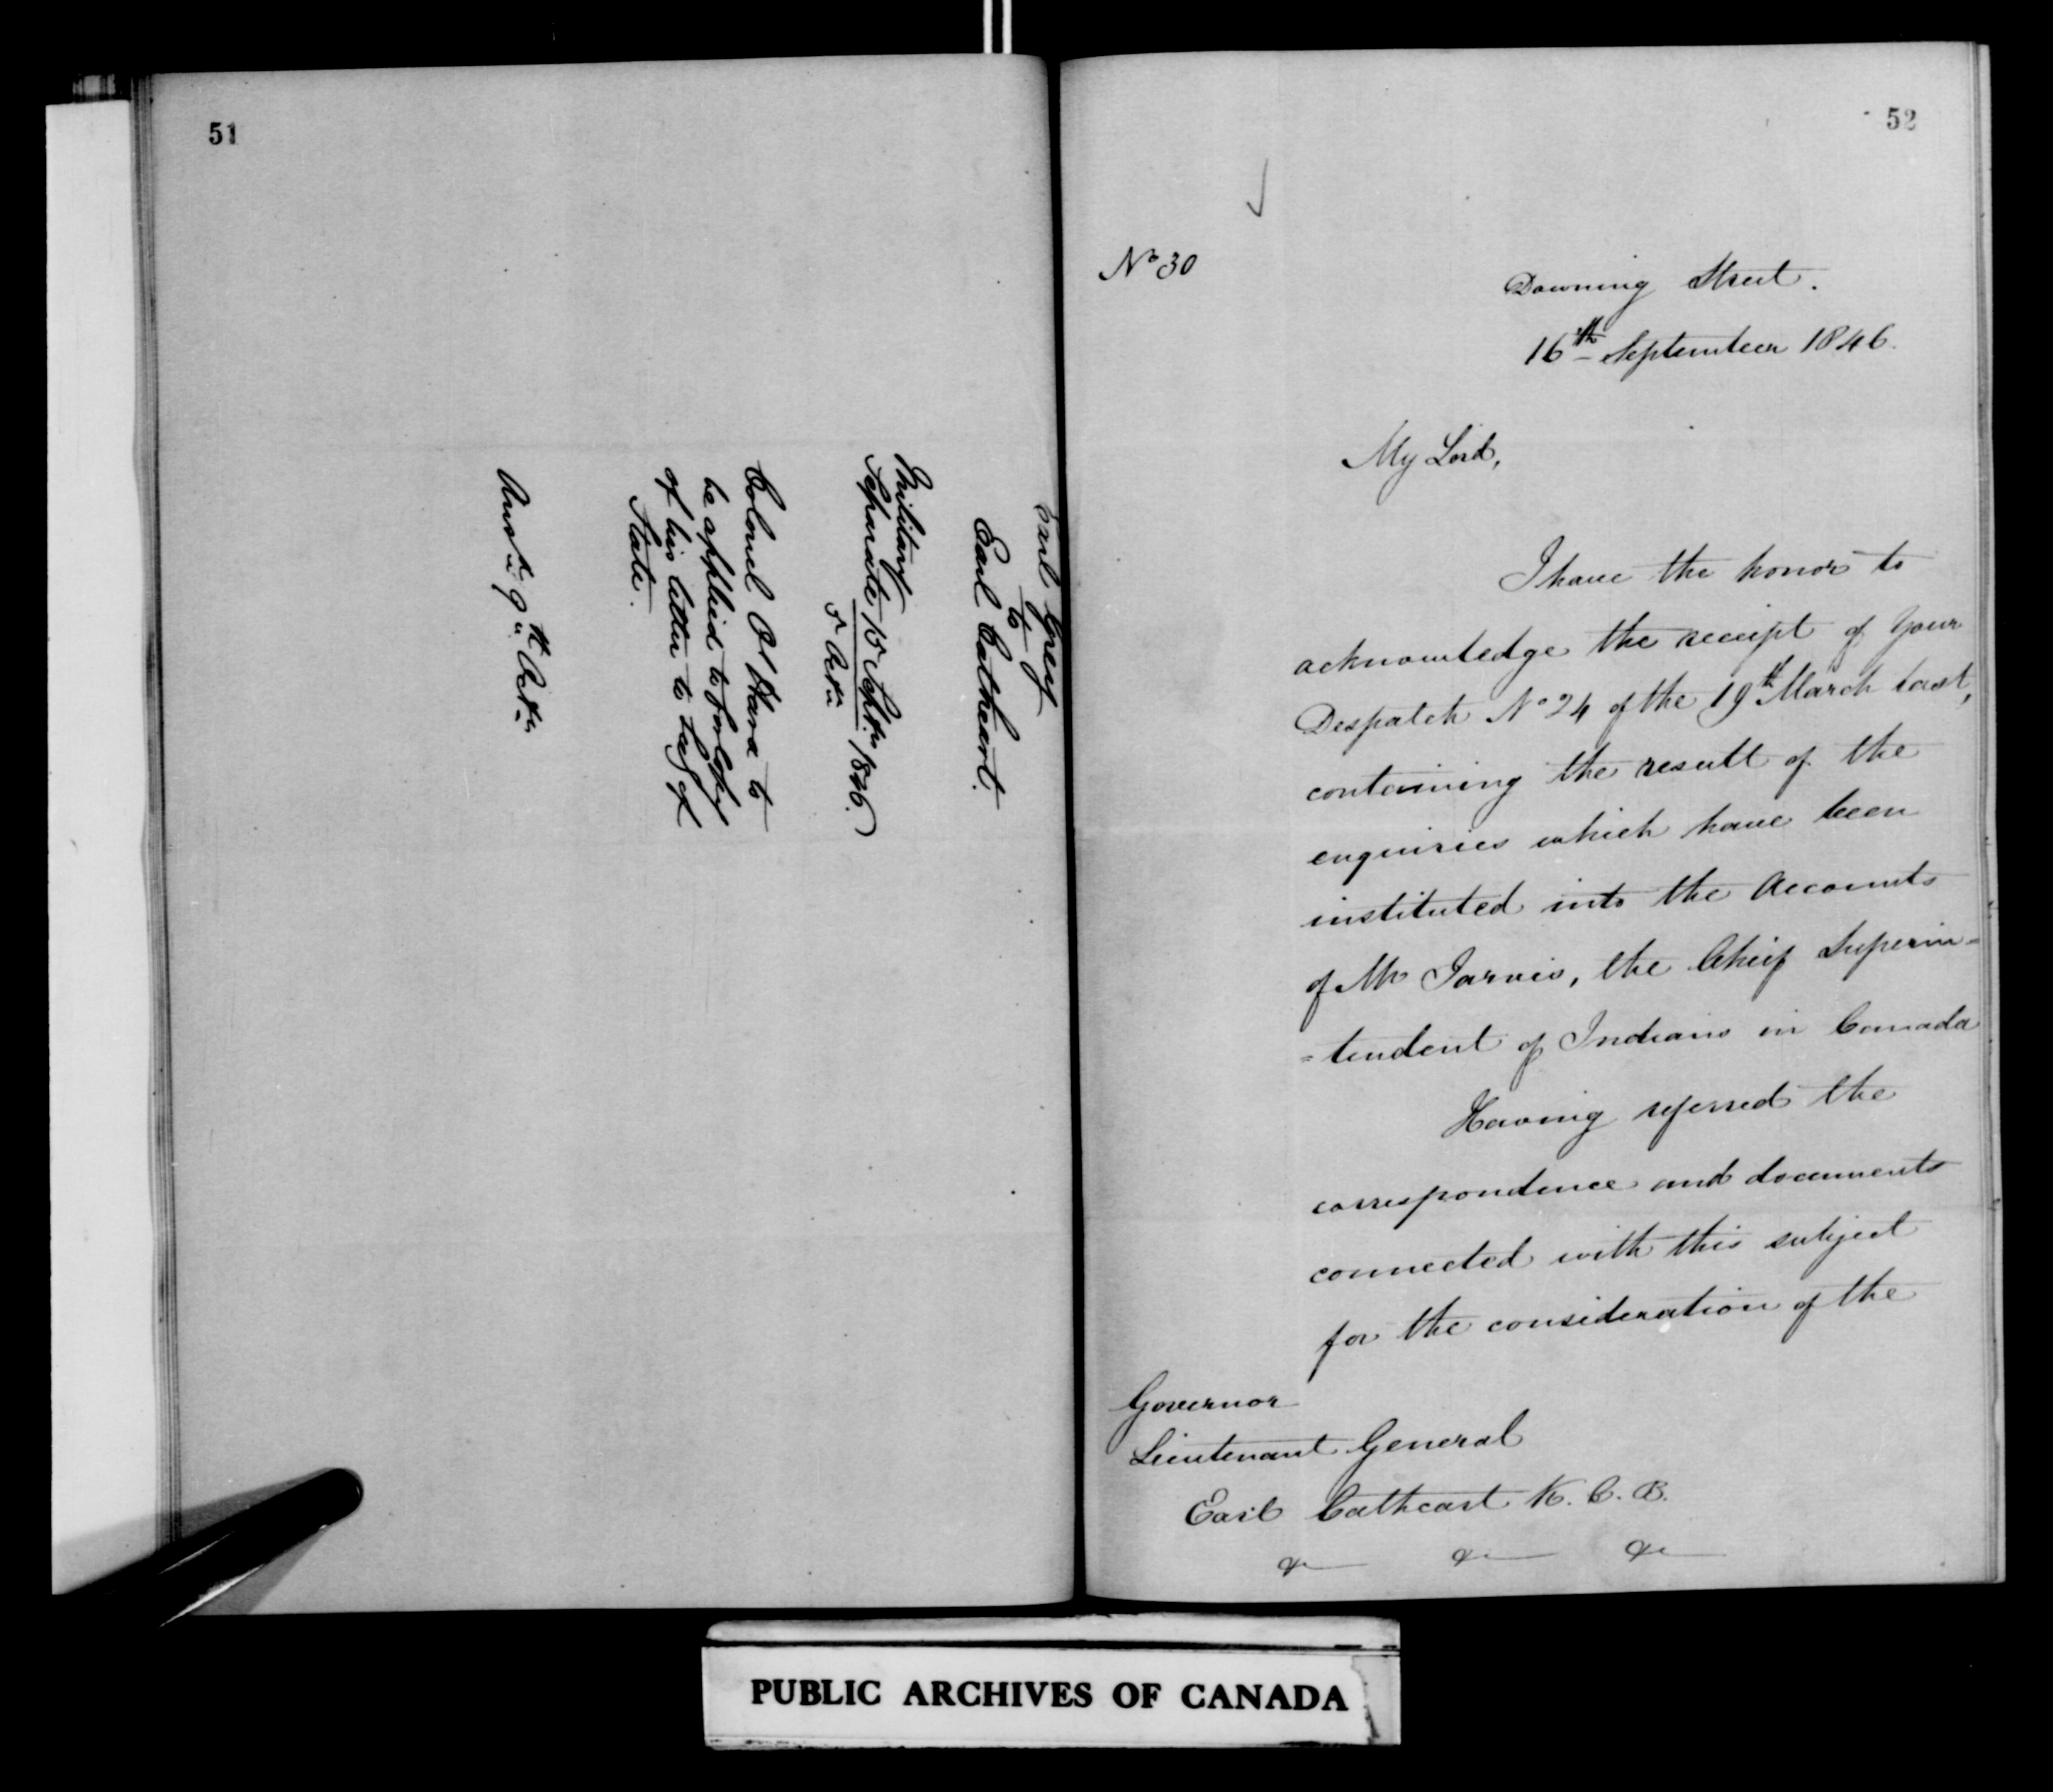 51
Earl Grey
to
Earl Cathcart.
Military
Separate 15 Septr. 1846.
5 Octr.
Colonel O'Hara to
be applied to for Copy
of his letter to Secy of
State.
Ansd. 9th Octr.
52
No 30
Downing Street.
16th September 1846.
My Lord,
I have the honor to
acknowledge the receipt of Your
Despatch No 24 of the 19th March last,
containing the result of the
enquiries which have been
instituted into the Accounts
of Mr Jarvis, the Chief Superin=
=tendent of Indians in Canada
Having referred the
correspondence and documents
connected with this subject
for the consideration of the
Governor
Lieutenant General
Earl Cathcart K. C. B.
&c &c &c
PUBLIC ARCHIVES OF CANADA